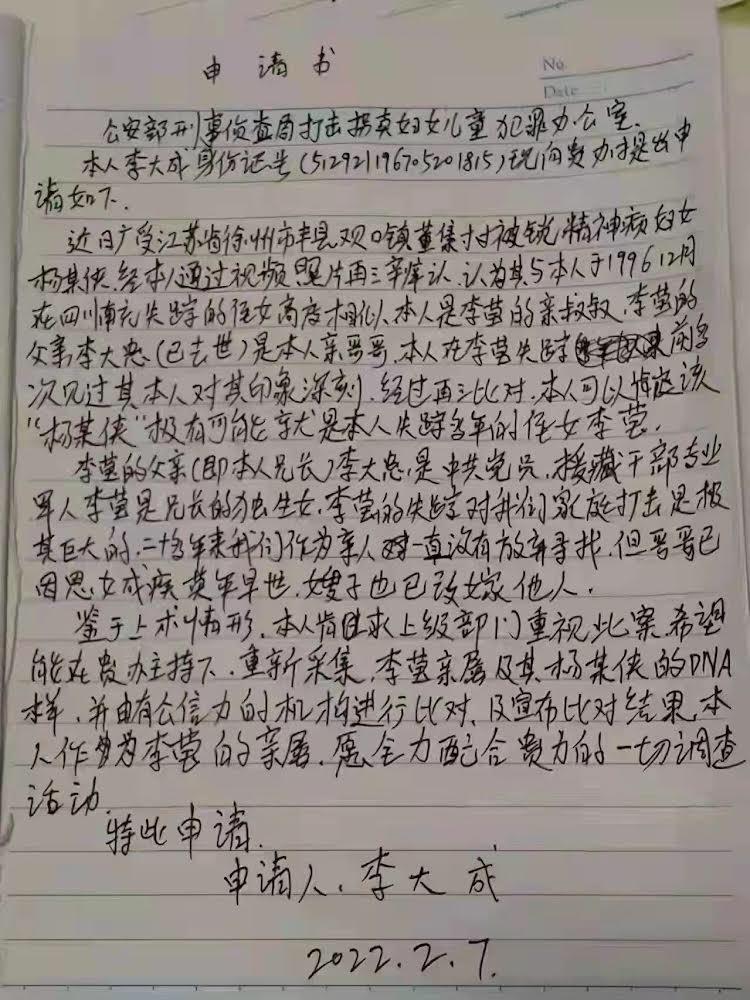 申请书
No.
Date
公安部刑事侦查局打击拐卖妇女儿童犯罪办公室.
本人李大成身份证号(512921196705201815)现向贵办特提出申
请如下.
近日广受江苏省徐州市丰县欢口镇董集村被锁精神病妇女
杨某侠,经本人通过视频照片再三辨认,认为其与本人于1996 12月
在四川南充失踪的侄女高度相似,本人是李莹的亲叔叔,李莹的
父亲李大忠(已去世)是本人亲哥哥,本人在李莹失踪前多
次见过其本人对其印象深刻,经过再三比对,本人可以肯定该
“杨某侠”极有可能就是本人失踪多年的侄女李莹.
李莹的父亲(即本人兄长)李大忠,是中共党员,援藏干部专业
军人李莹是兄长的独生女,李莹的失踪对我们家庭打击是极
其巨大的,二十多年来我们作为亲人一直没有放弃寻找,但哥哥已
因思女成疾英年早世,嫂子也已改嫁他人.
鉴于上术情形,本人肯且求上级部门重视此案,希望
能在贵办主持下,重新采集,李莹亲属及其杨某侠的DNA
样,并由有公信力的机构进行比对,及宣布比对结果,本
人作为李莹的亲属,愿全力配合贵办的一切调查
活动.
特此申请.
申请人.李大成
2022.2.7.